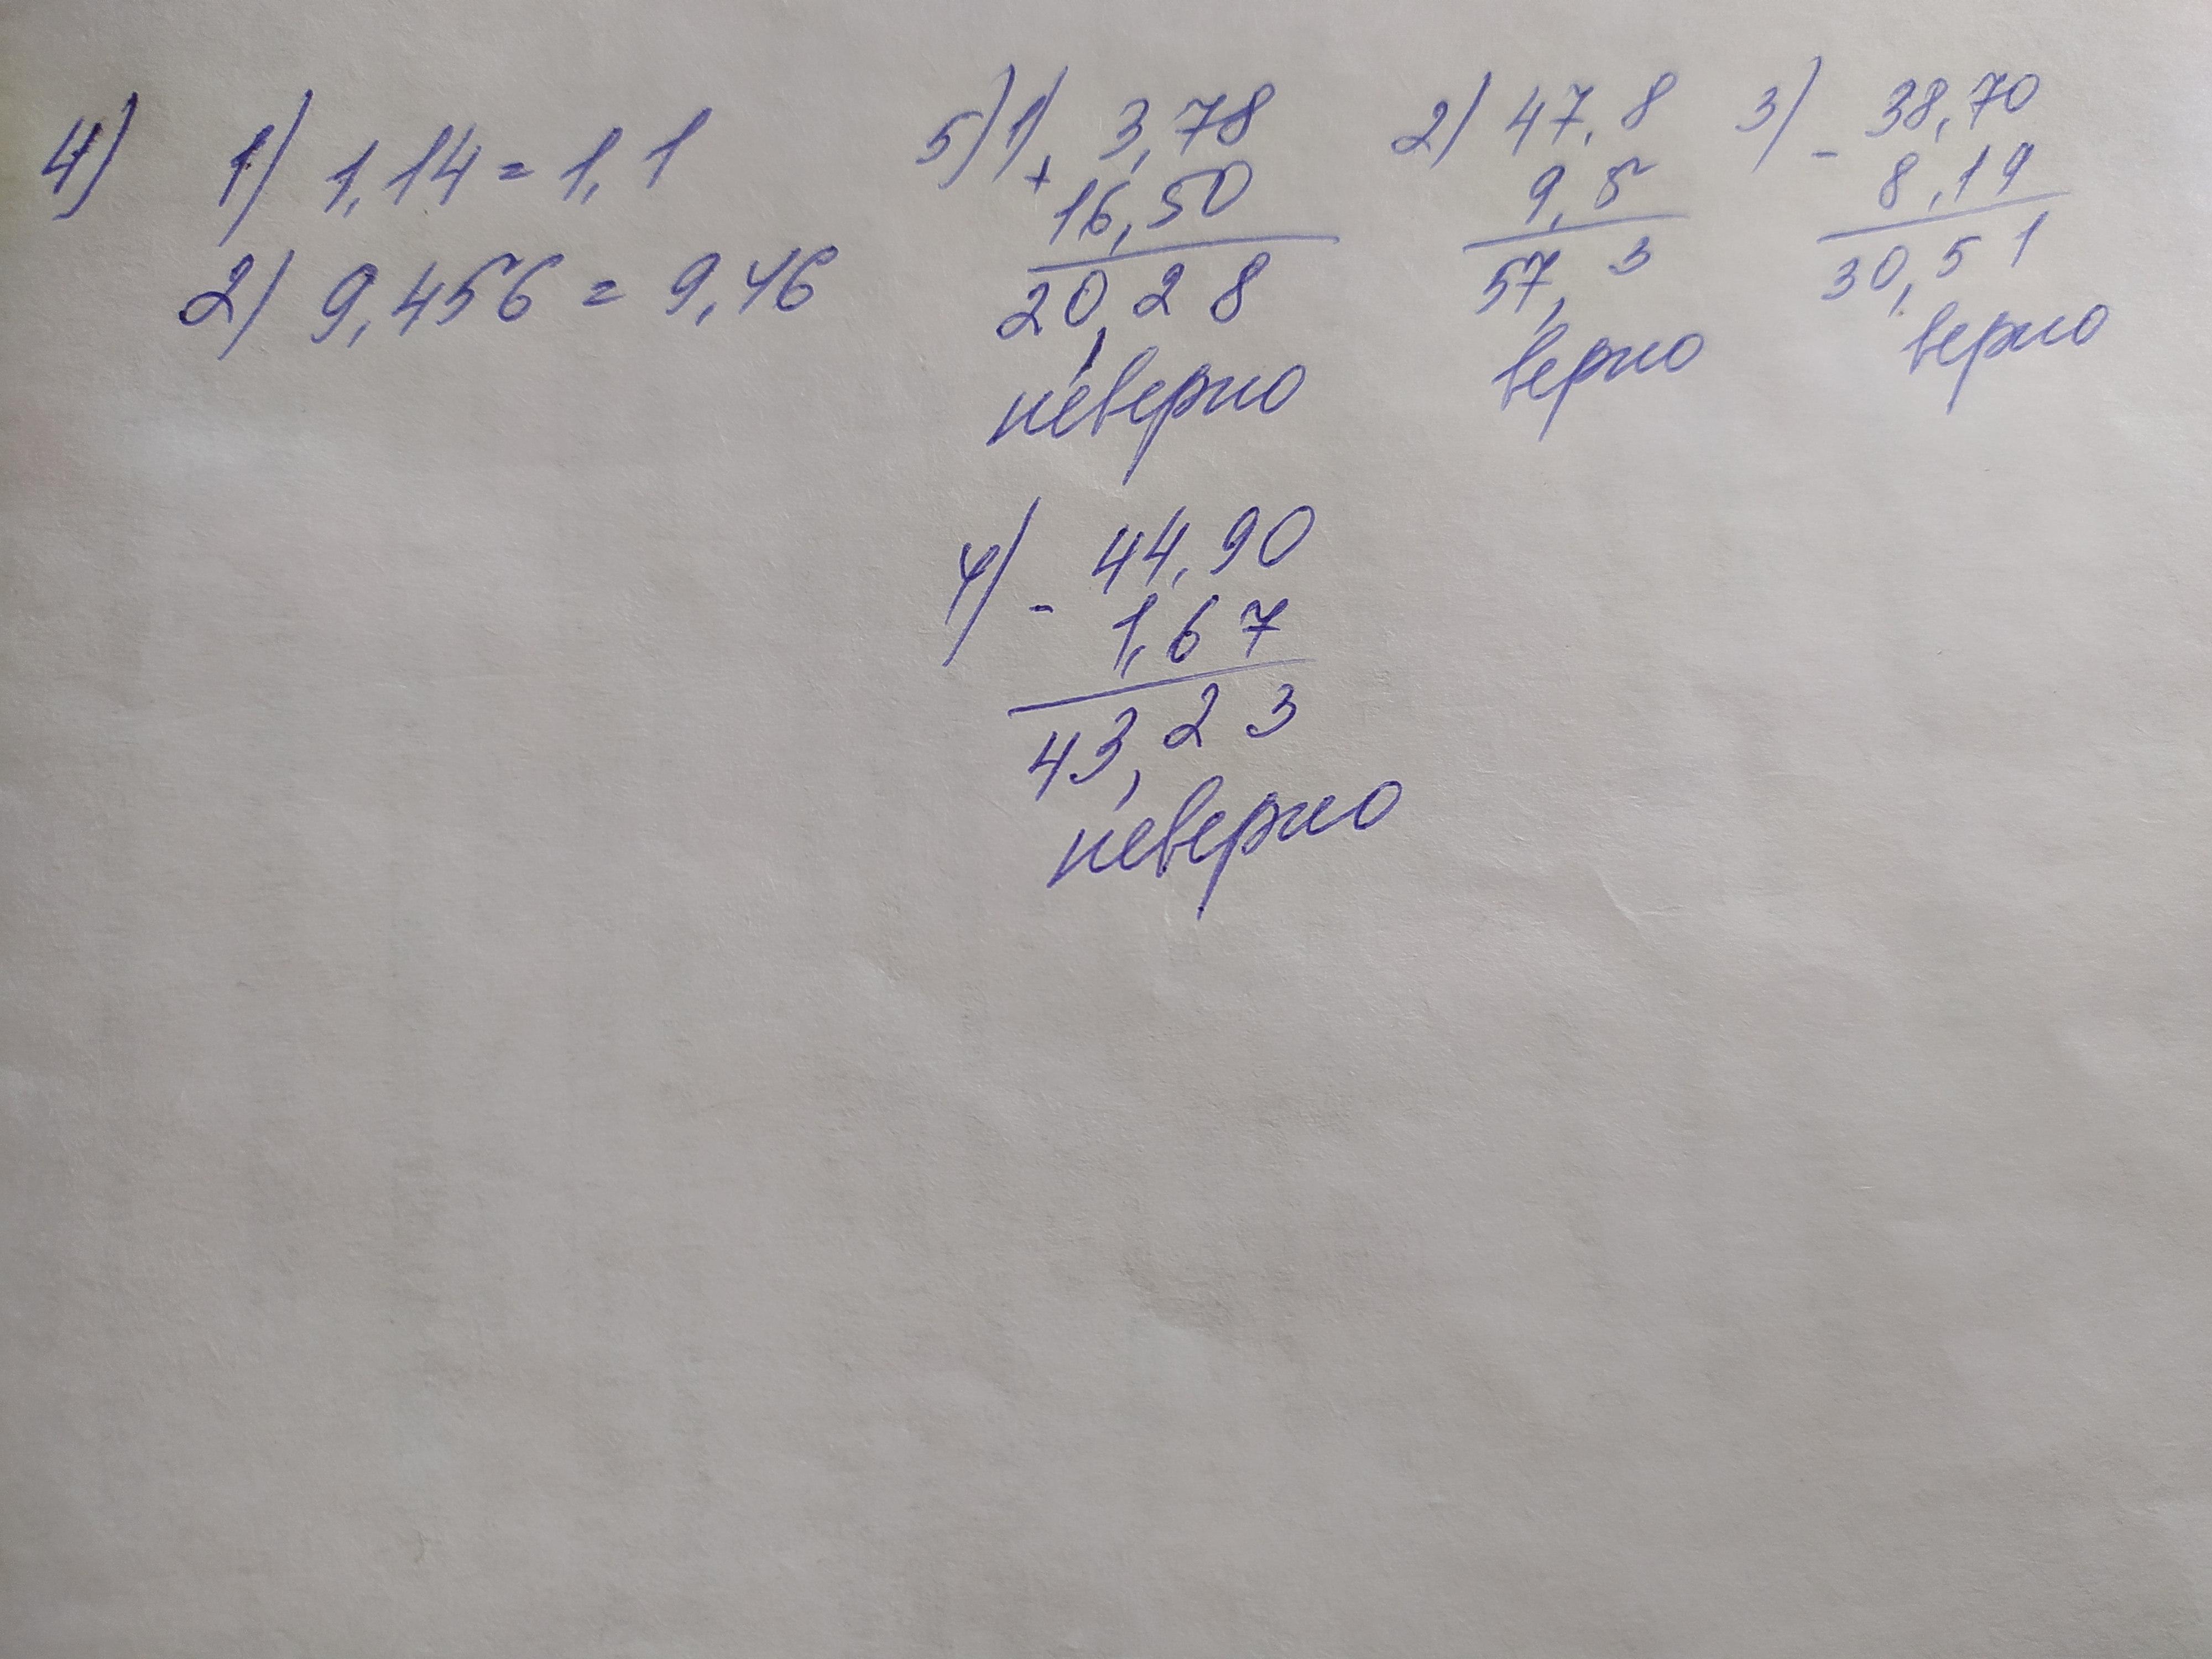 4) 1) 1,14 = 1,1
2) 9,456 = 9,46
5) 1) 3,78
+ 16,50
20,28
неверно
2) 47,8
9,5
57,3
верно
3) - 38,70
8,19
30,51
верно
4) - 44,90
1,67
43,23
неверно